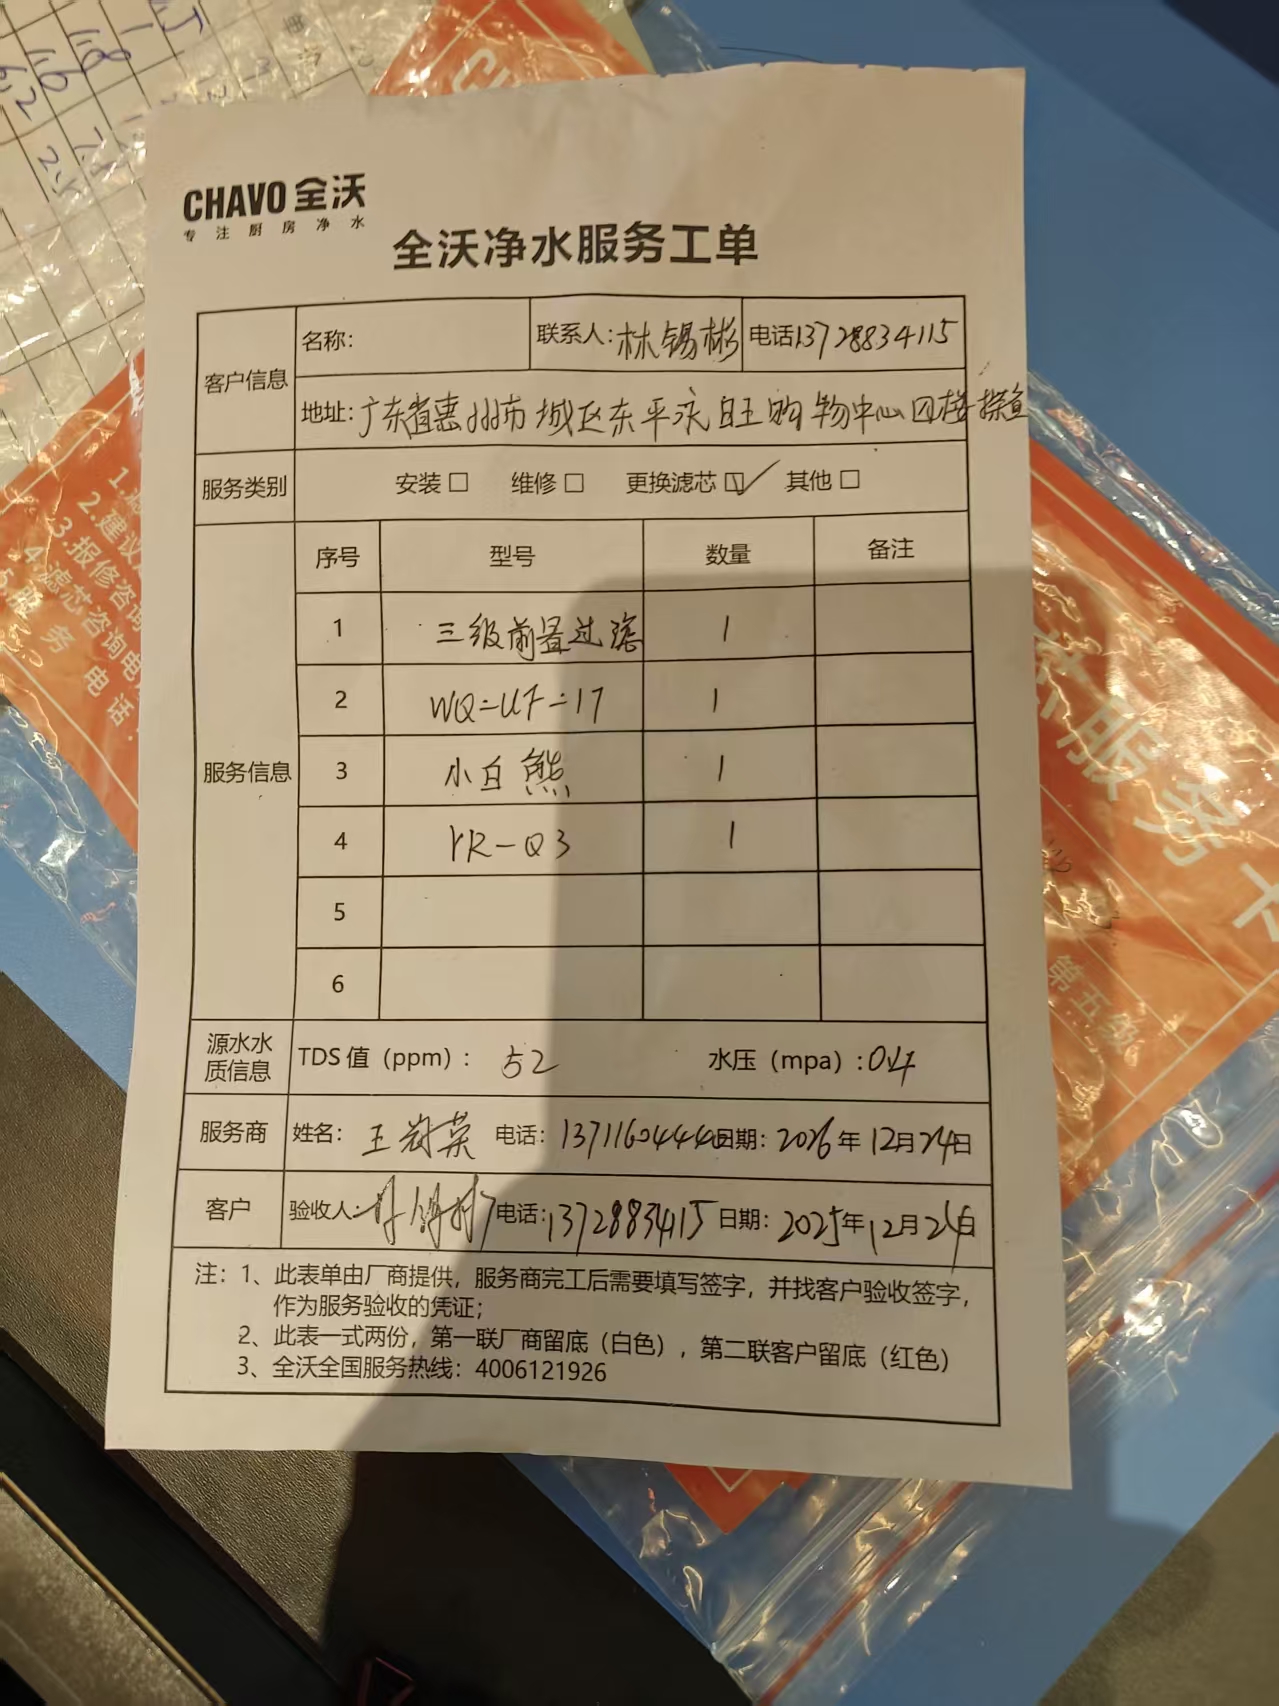 CHAVO 全沃
专注厨房净水
全沃净水服务工单
客户信息 名称: 联系人: 林锡彬 电话 13728834115
地址: 广东省惠州市城区东平永旺购物中心四楼探鱼
服务类别 安装□ 维修□ 更换滤芯☑ 其他□
服务信息 序号 型号 数量 备注
1 三级前置过滤 1
2 WQ-UF-17 1
3 小白熊 1
4 YR-Q3 1
5
6
源水水质信息 TDS 值(ppm): 52 水压(mpa): 0.4
服务商 姓名: 电话: 日期: 2026年12月24日
客户 验收人: 电话: 13728834115 日期: 2025年12月24日
注: 1、此表单由厂商提供,服务商完工后需要填写签字,并找客户验收签字,
作为服务验收的凭证;
2、此表一式两份,第一联厂商留底(白色),第二联客户留底(红色)
3、全沃全国服务热线: 4006121926
服务卡
第五级
1.
2.建议
3.报修咨询
4.滤芯咨询电
服务电话: